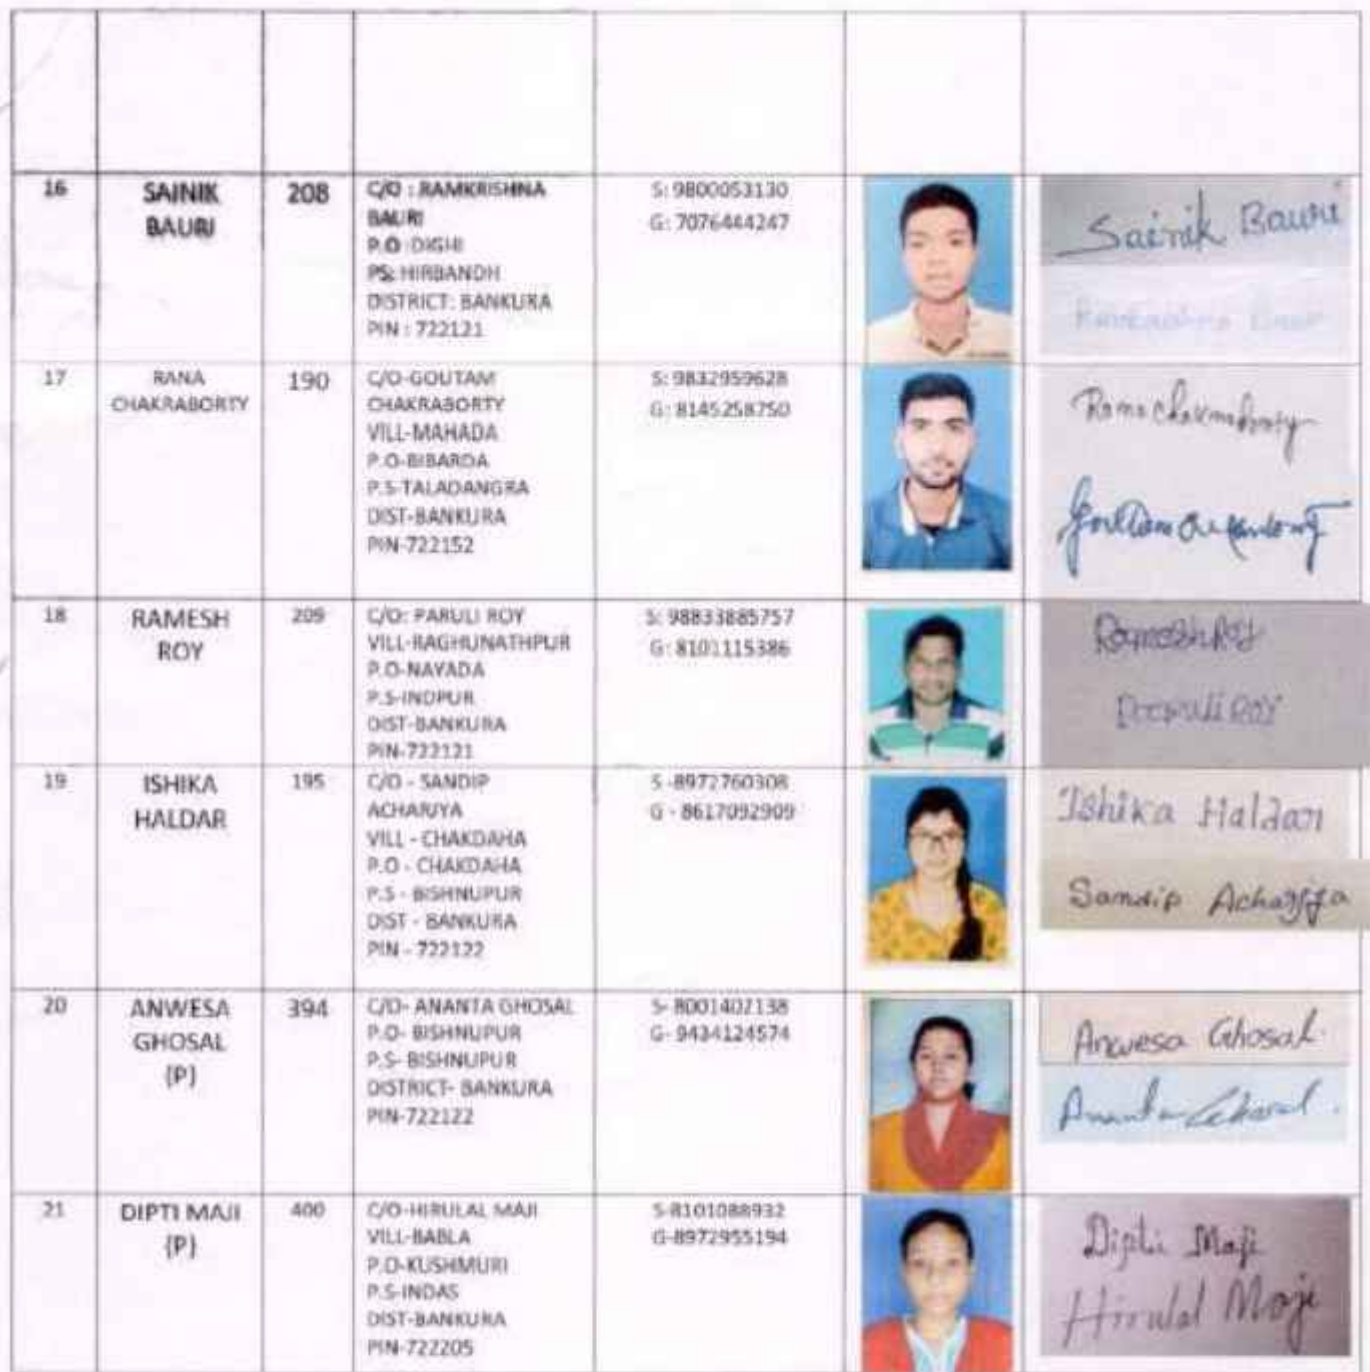 16
SAINIK
BAURI
208
C/O : RAMKRISHNA
BAURI
P.O :DIGHI
PS: HIRBANDH
DISTRICT: BANKURA
PIN : 722121
S: 9800053130
G: 7076444247
Sainik Bauri
17
RANA
CHAKRABORTY
190
C/O-GOUTAM
CHAKRABORTY
VILL-MAHADA
P.O-BIBARDA
P.S-TALADANGRA
DIST-BANKURA
PIN-722152
S: 9832959628
G: 8145258750
18
RAMESH
ROY
209
C/O: PARULI ROY
VILL-RAGHUNATHPUR
P.O-NAYADA
P.S-INDPUR
DIST-BANKURA
PIN-722121
S: 98833885757
G: 8101115386
Ramesh Roy
19
ISHIKA
HALDAR
195
C/O - SANDIP
ACHARJYA
VILL - CHAKDAHA
P.O - CHAKDAHA
P.S - BISHNUPUR
DIST - BANKURA
PIN - 722122
S -8972760308
G - 8617092909
Ishika Haldar
Sandip Acharjya
20
ANWESA
GHOSAL
(P)
394
C/O- ANANTA GHOSAL
P.O- BISHNUPUR
P.S- BISHNUPUR
DISTRICT- BANKURA
PIN-722122
S- 8001402138
G- 9434124574
Anwesa Ghosal
Ananta Ghosal.
21
DIPTI MAJI
(P)
400
C/O-HIRULAL MAJI
VILL-BABLA
P.O-KUSHMURI
P.S-INDAS
DIST-BANKURA
PIN-722205
S-8101088932
G-8972955194
Dipti Maji
Hirulal Maji